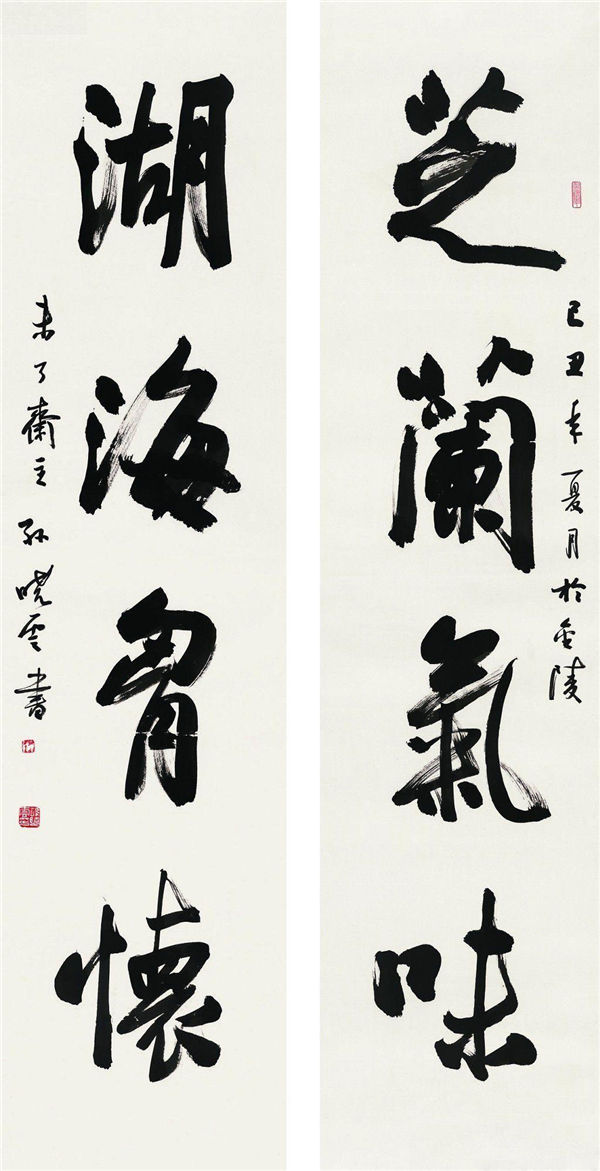 芝蘭氣味
己丑年夏月於金陵
湖海胷懷
未了齋主孫曉雲書